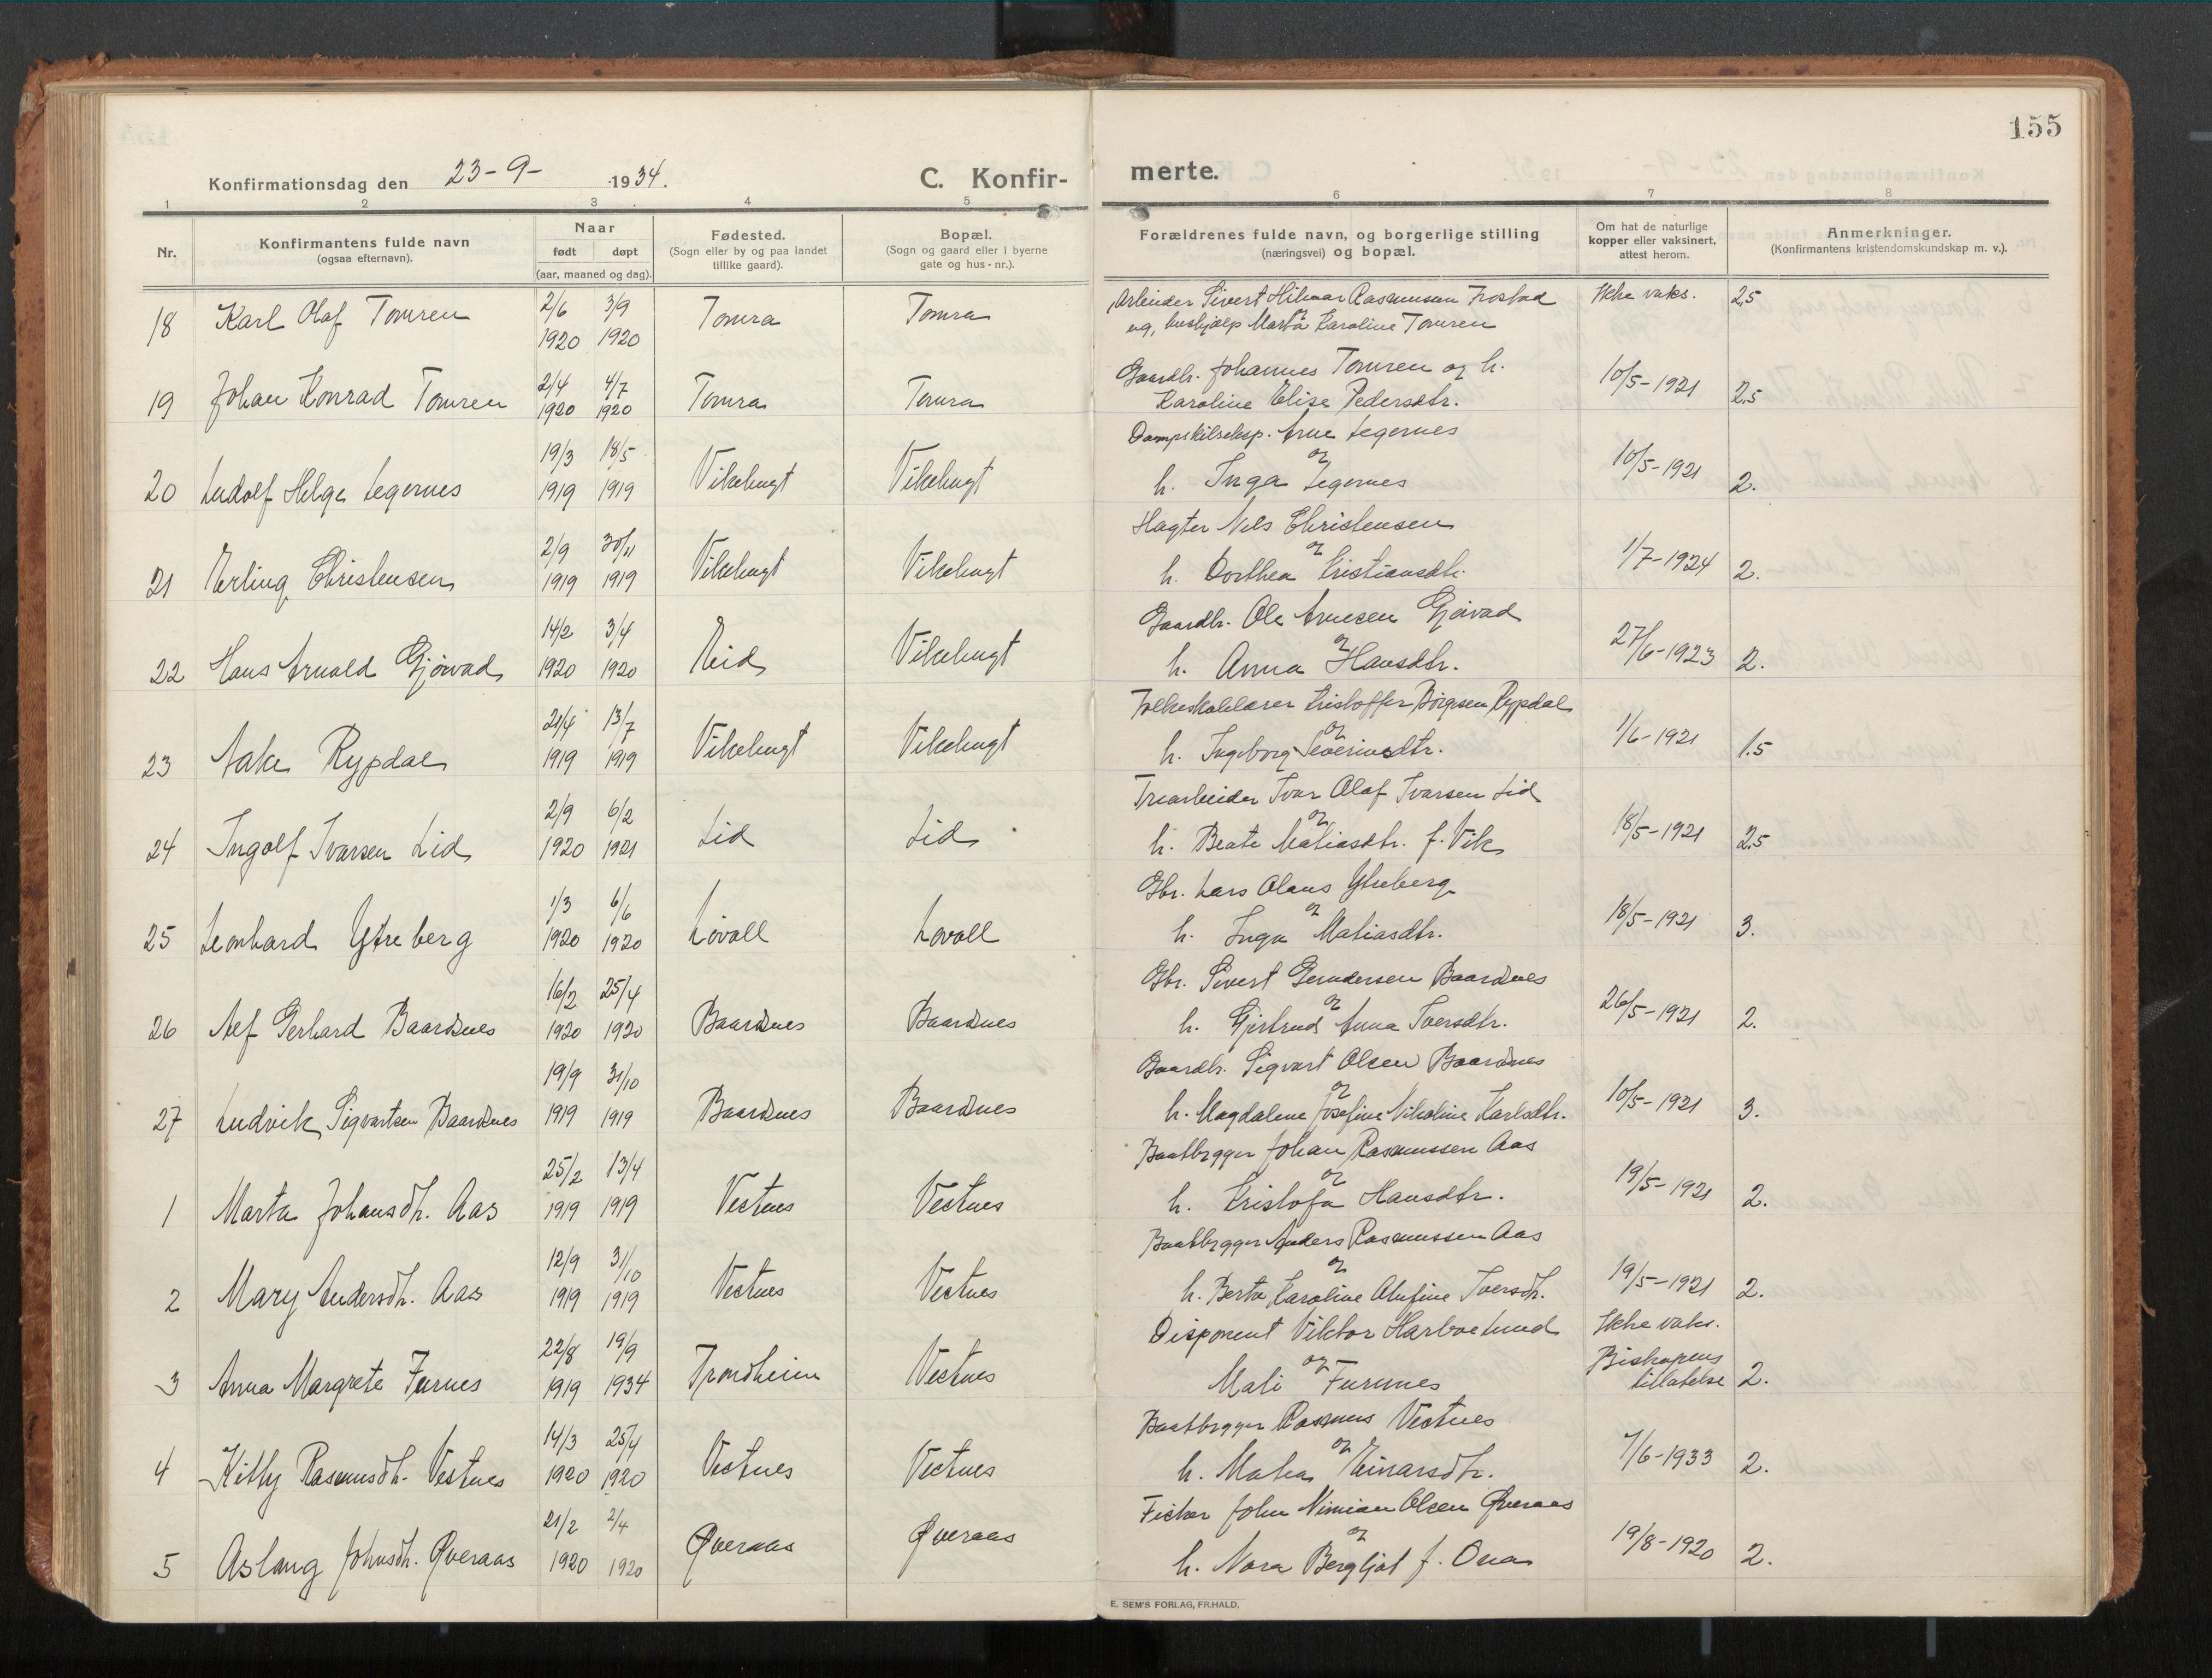 155
Konfirmationsdag den 23-9- 1934. C. Konfir- merte.
1 2 3 4 5 6 7 8
Nr. Konfirmantens fulde navn (ogsaa efternavn). Naar født døpt (aar, maaned og dag). Fødested. (Sogn eller by og paa landet tillike gaard). Bopæl. (Sogn og gaard eller i byerne gate og hus-nr.). Forældrenes fulde navn, og borgerlige stilling (næringsvei) og bopæl. Om hat de naturlige kopper eller vaksinert, attest herom. Anmerkninger. (Konfirmantens kristendomskundskap m. v.).
2/6 3/9 Arbeider Sivert Hilmar Rasmussen Frostad Ikke vaks. 2,5
18 Karl Olaf Tomren 1920 1920 Tomra Tomra og ug. hushjælp Marta Karoline Tomren
2/4 4/7 Gaardbr. Johannes Tomren og h.
19 Johan Konrad Tomren 1920 1920 Tomra Tomra Karoline Elise Pedersdtr. 10/5-1921 2,5
19/3 18/5 Dampskibseksp. Arne Legernes
og
20 Ludolf Helge Legernes 1919 1919 Vikebugt Vikebugt h. Inga Legernes 10/5-1921 2.
2/9 30/11 Slagter Nils Christensen
og
21 Erling Christensen 1919 1919 Vikebugt Vikebugt h. Dorthea Kristiansdtr. 1/7-1924 2.
14/2 3/4 Gaardbr. Ole Arnesen Gjøvad
og
22 Hans Arnold Gjøvad 1920 1920 Eid Vikebugt h. Anna Hansdtr. 27/6-1923 2.
21/4 13/7 Folkeskolelærer Kristoffer Børgesen Rypdal
og
23 Aake Rypdal 1919 1919 Vikebugt Vikebugt h. Ingeborg Severinsdtr. 1/6-1921 1.5
2/9 6/2 Træarbeider Ivar Olaf Ivarsen Lid
og
24 Ingolf Ivarsen Lid 1920 1921 Lid Lid h. Beate Matiasdtr. f. Vik 18/5-1921 2,5
1/3 6/6 Gbr. Lars Olaus Ytreberg
og
25 Leonhard Ytreberg 1920 1920 Lovoll Lovoll h. Inga Matiasdtr. 18/5-1921 3.
16/2 25/4 Gbr. Sivert Gundersen Baardsnes
og
26 Alf Gerhard Baardsnes 1920 1920 Baardsnes Baardsnes h. Gjertrud Anna Iversdtr. 26/5-1921 2.
19/9 31/10 Gaardbr. Sigvart Olsen Baardsnes
og
27 Ludvik Sigvartsen Baardsnes 1919 1919 Baardsnes Baardsnes h. Magdalene Josefine Nikoline Karlsdtr. 10/5-1921 3.
25/2 13/4 Baatbygger Johan Rasmussen Aas
og
1 Marta Johansdtr. Aas 1919 1919 Vestnes Vestnes h. Kristofa Hansdtr. 19/5-1921 2.
12/9 31/10 Baatbygger Anders Rasmussen Aas
og
2 Mary Andersdtr. Aas 1919 1919 Vestnes Vestnes h. Berta Karoline Olufine Iversdtr. 19/5-1921 2.
22/8 19/9 Disponent Viktor Harboe Lund Ikke vaks.
og Biskopens
3 Anna Margrete Furnes 1919 1934 Trondheim Vestnes Mali Furunes tillatelse 2.
14/3 25/4 Baatbygger Rasmus Vestnes
og
4 Kitty Rasmusdtr. Vestnes 1920 1920 Vestnes Vestnes h. Matea Einarsdtr. 7/6-1933 2.
21/2 2/4 Fisker John Nimian Olsen Øveraas
og
5 Aslaug Johnsdtr. Øveraas 1920 1920 Øveraas Øveraas h. Nora Bergljot f. Ona 19/8-1920 2.
E. SEM'S FORLAG, FR.HALD.